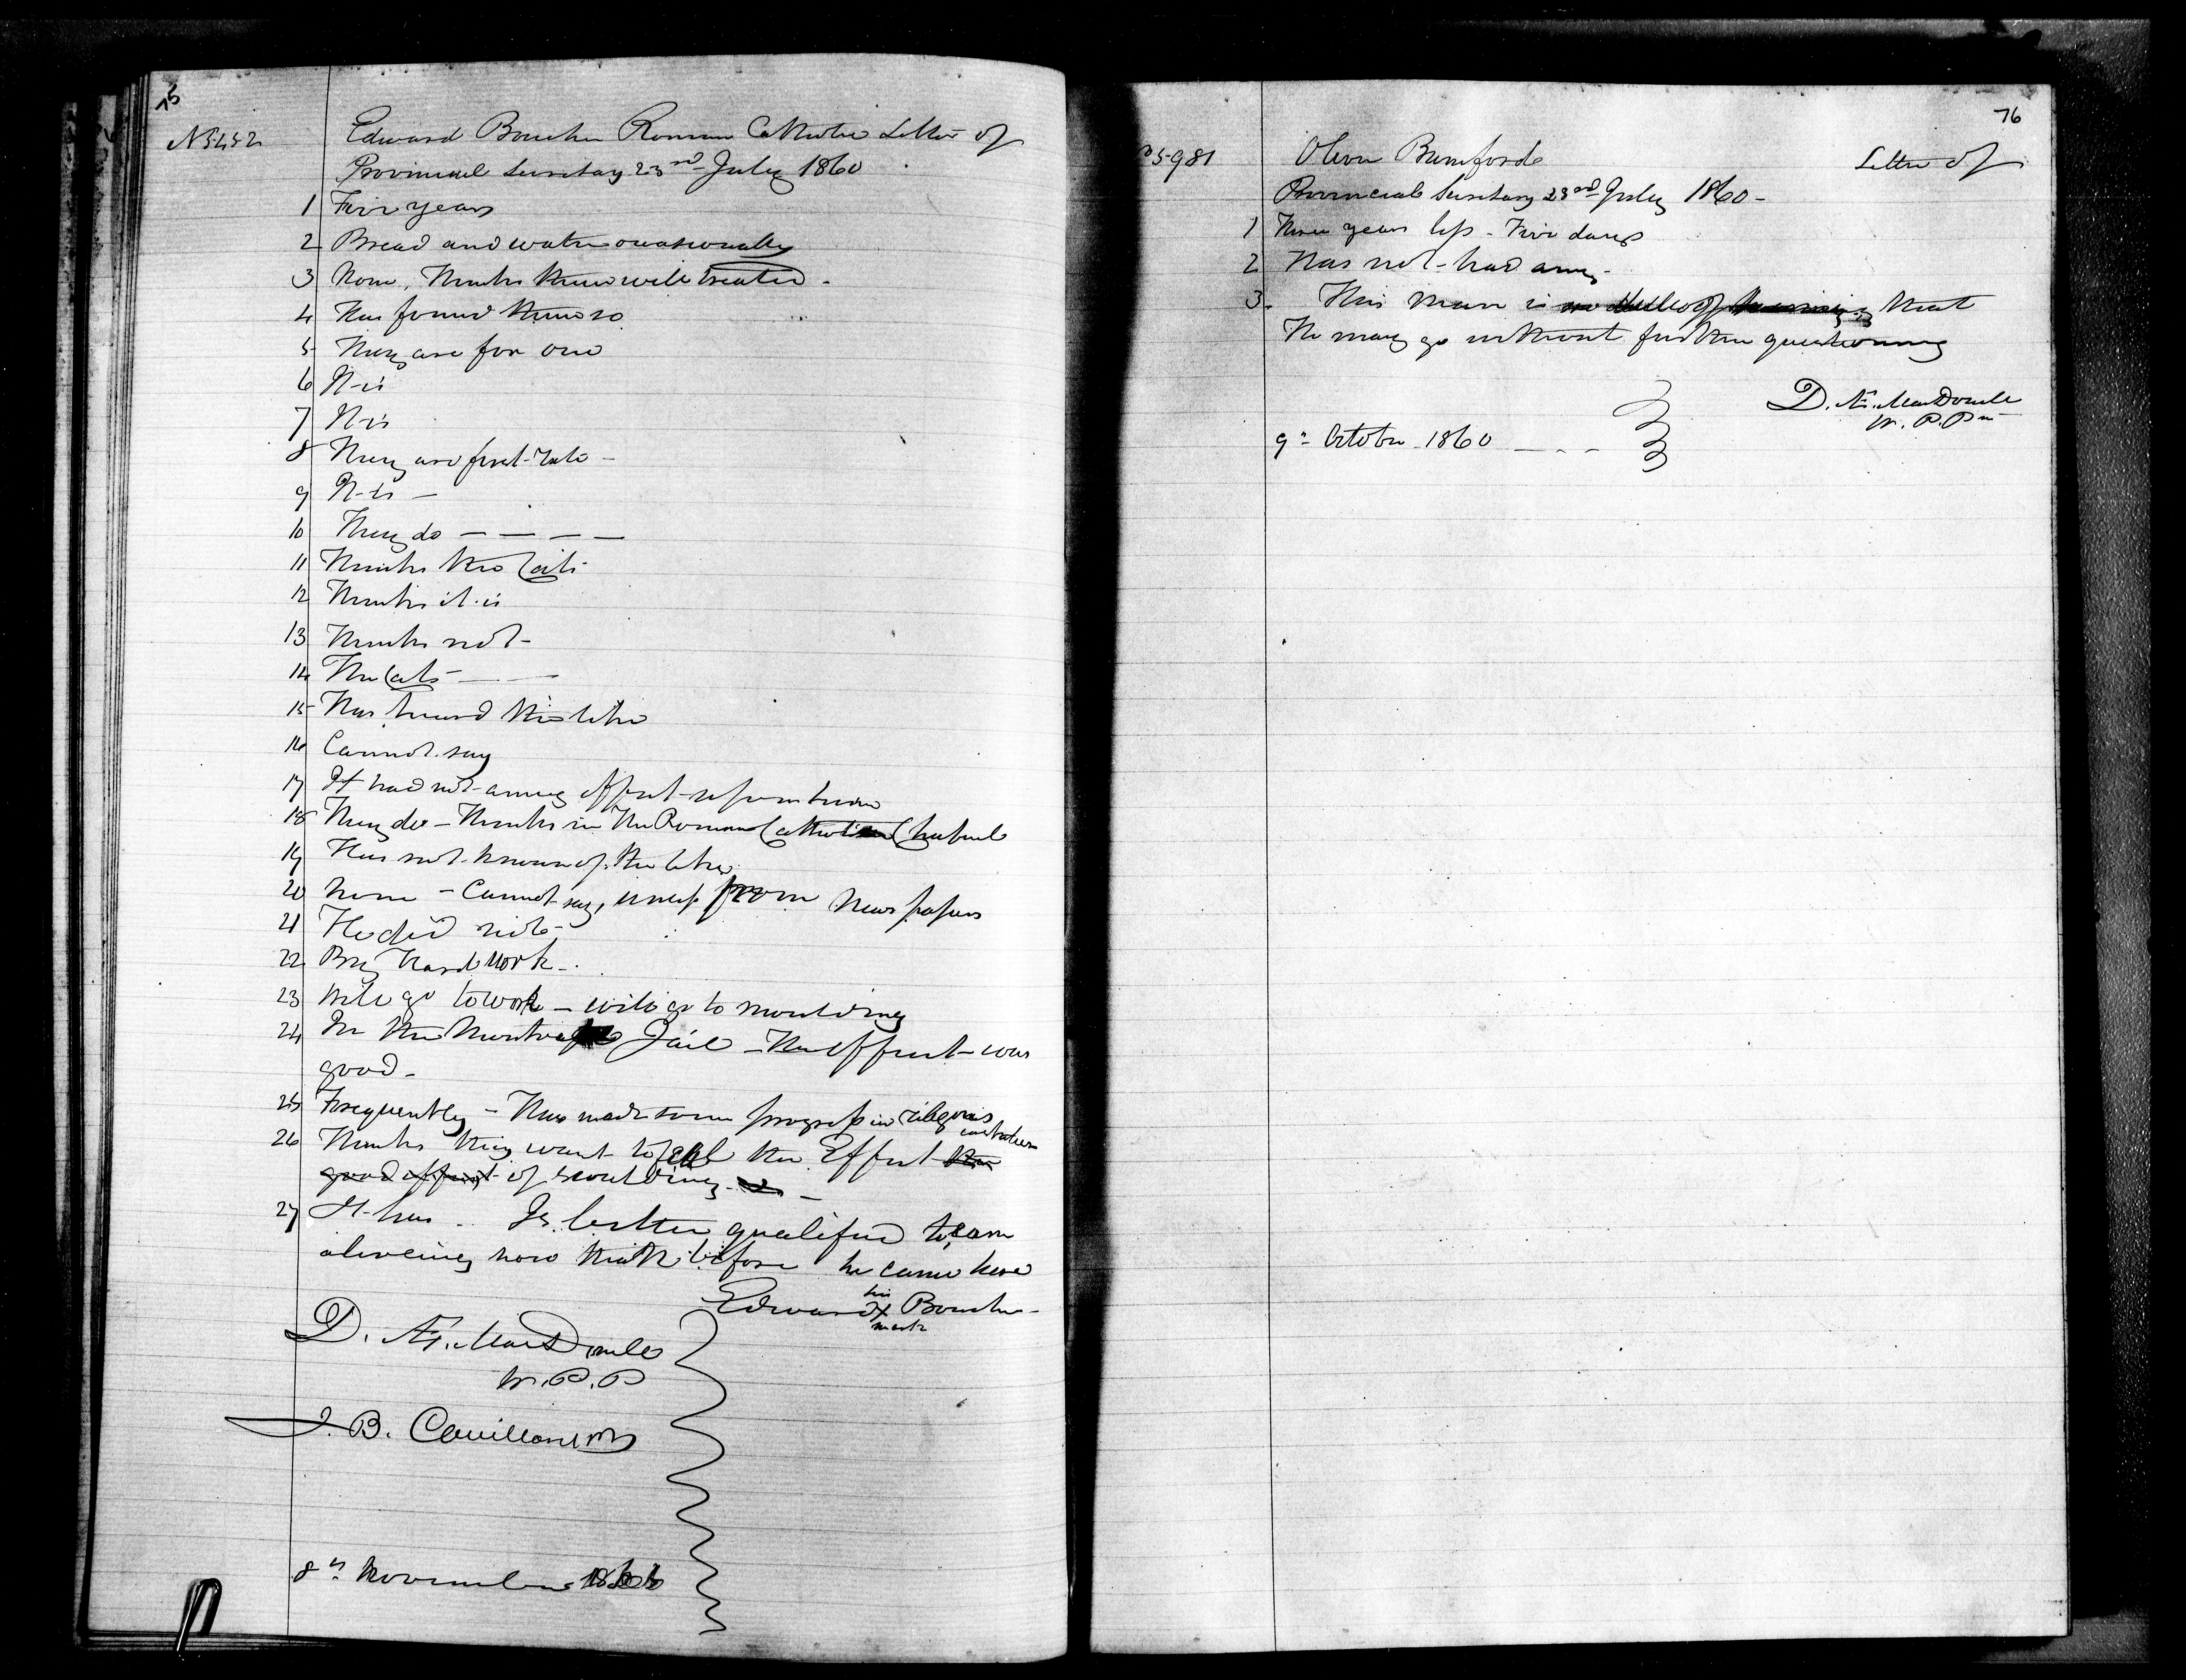 75
No 5452 Edward Boucher Roman Catholic Letter of
Provincial Secretary 23rd July 1860
1 Five years
2 Bread and water occasionally
3 None, Thinks them well treated -
4 Has found them so
5 They are for one
6 It is
7 It is
8 They are first-rate -
9 It is -
10 They do - - - -
11 Thinks the Cats
12 Thinks it is
13 Thinks not -
14 The Cats -
15 Has heard the like
16 Cannot say
17 It had not any effect
18 They do - Thinks in the Roman Catholic Chapel
19 Has not known of the like
20 None - Cannot say, unless from News papers
21 He did not -
22 By hard work -
23 Will go to work - will go to moulding
24 In the Montreal Jail - The effect was
good -
25 Frequently - Has made some progress in religious
instruction
26 Thinks they want to feel the Effect the
good effect of scolding -
27 It has - Is better qualified to earn
a liveing now than before he came here
Edward his X mark Boucher
D. Æ. MacDonell
W. P. P
J. B.
8th November 1860
76
No 5981 Oliver Bumforde Letter of
Provincial Secretary 23rd July 1860 -
1 Three years less - Five days
2 Has not had any -
3. This man is so dull of hearing that
He may go without further questioning
D. Æ. MacDonell
W. P. P
9th October 1860 - - -